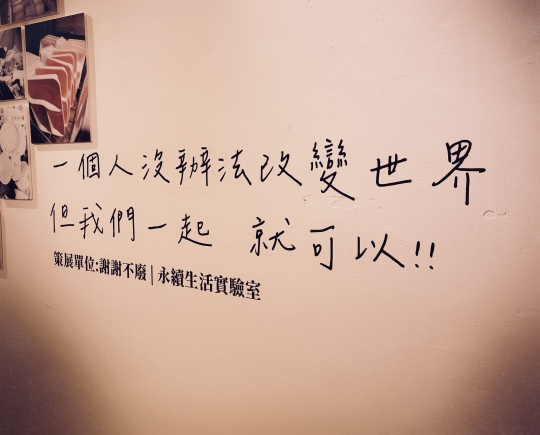 一個人沒辦法改變世界
但我們一起 就可以!!
策展單位:謝謝不廢|永續生活實驗室